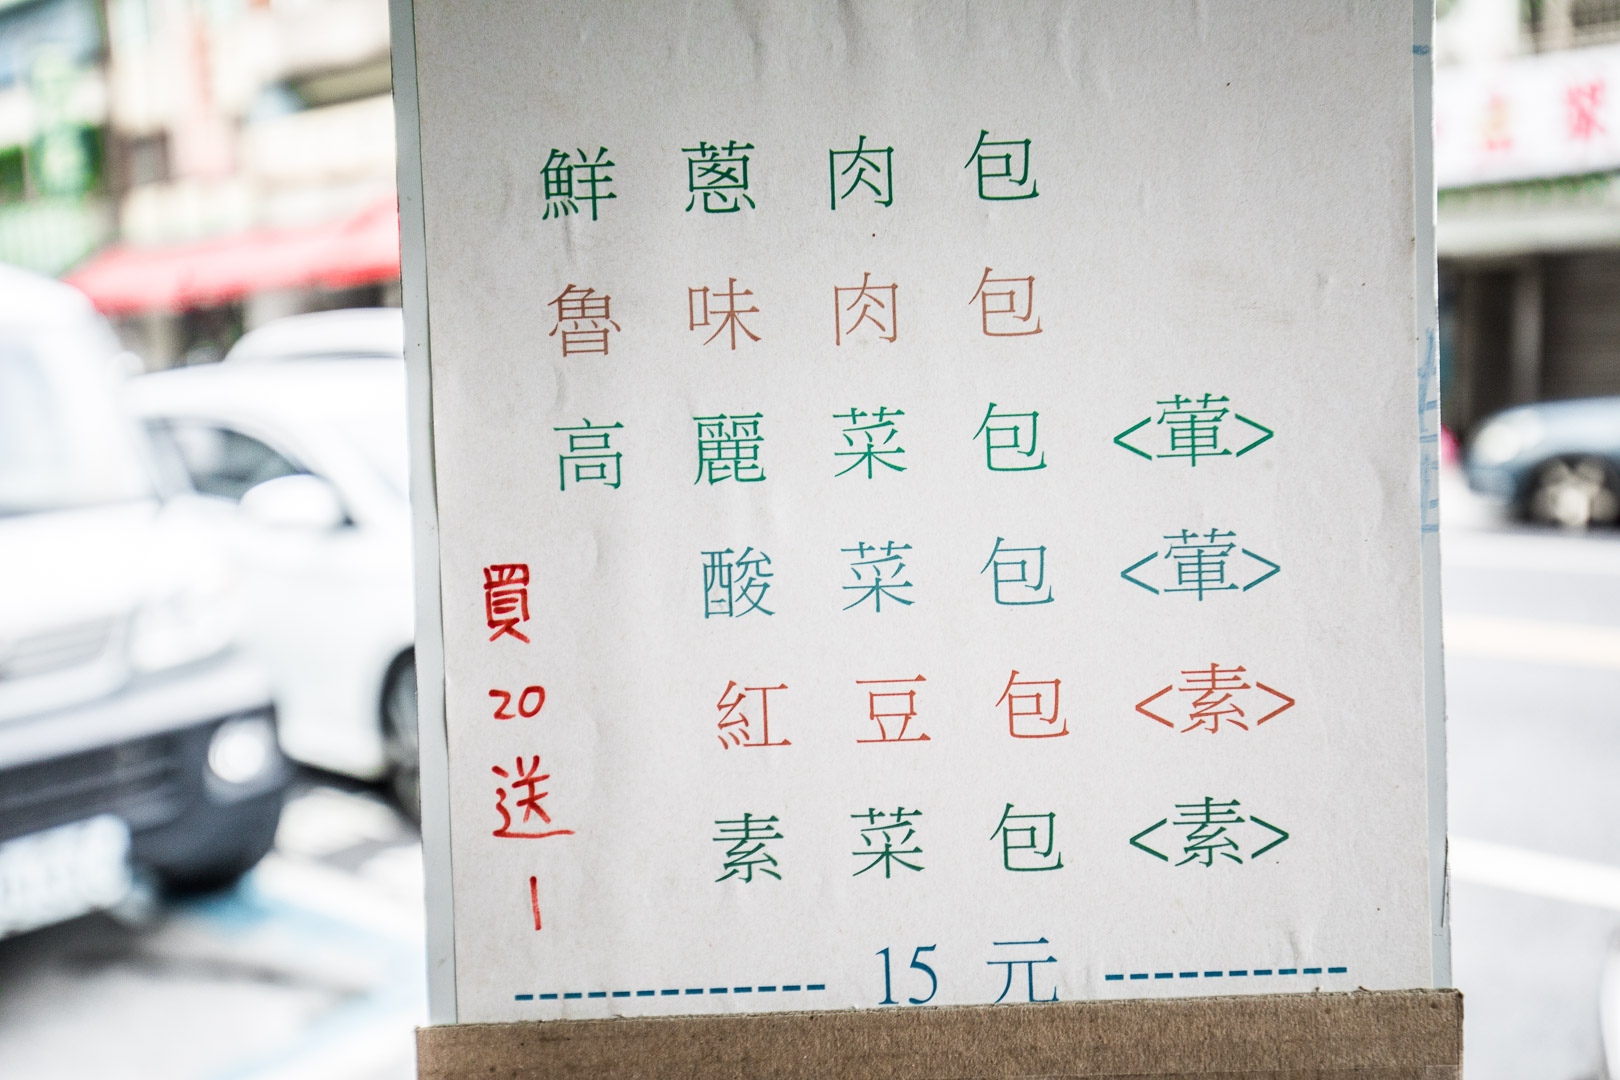 鮮蔥肉包
魯味肉包
高麗菜包<葷>
酸菜包<葷>
紅豆包<素>
素菜包<素>
------------- 15元 ----------
買
20
送
1